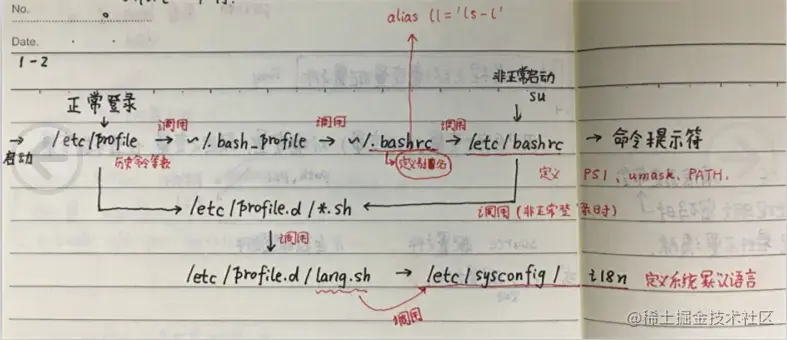 No.
alias ll='ls-l'
Date.
1-2
正常登录
非正常启动
su
启动
/etc/profile 调用 ~/.bash_profile 调用 ~/.bashrc 调用 /etc/bashrc → 命令提示符
历史命令等数
定义别名
定义 PS1, umask, PATH.
/etc/profile.d/*.sh
调用(非正常登录时)
调用
/etc/profile.d/lang.sh → /etc/sysconfig/i18n 定义系统默认语言
调用
@稀土掘金技术社区